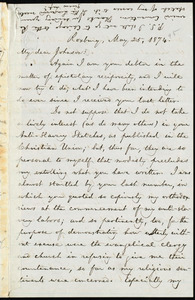 Roxbury, May 25, 1874.
My dear Johnson:
Again I am your debtor in the
matter of epistolary reciprocity, and it will now
try to say what I have been
since I received your last letter.
Do not suppose that I do not take a
lively interest (as so many others) in your
Anti-Slavery Sketches, as published in the
Christian Union; but, thus far, they are so
personal to myself that modesty precludes
my extolling what you have written. I was
almost startled by your last number, in
which you quoted so copiously my orthodox
views at the commencement of my anti-slavery
labors, and so pertinently, too, for the
purpose of demonstrating how utterly with-
out excuse were the evangelical clergy
and church in refusing to give me their
countenance, so far as my religious sen-
timents were concerned. Especially, my